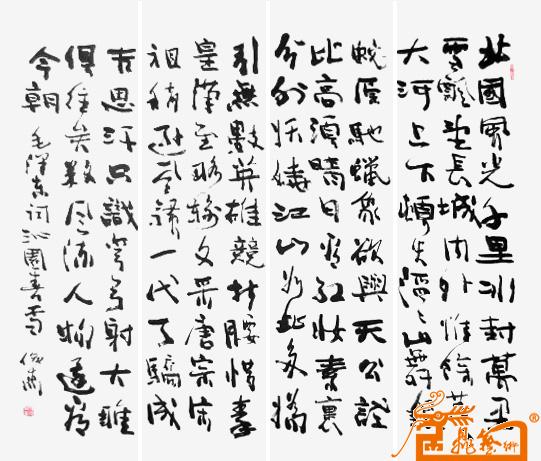 北國風光千里冰封萬里
雪飄望長城內外惟餘莽
大河上下頓失滔滔山舞銀
蛇原馳蠟象欲與天公試
比高須晴日看紅妝素裹
分外妖嬈江山如此多嬌
引無數英雄競折腰惜秦
皇漢武略輸文采唐宗宋
祖稍遜風騷一代天驕成
吉思汗只識彎弓射大雕
俱往矣數風流人物還看
今朝 毛澤東詞沁園春雪